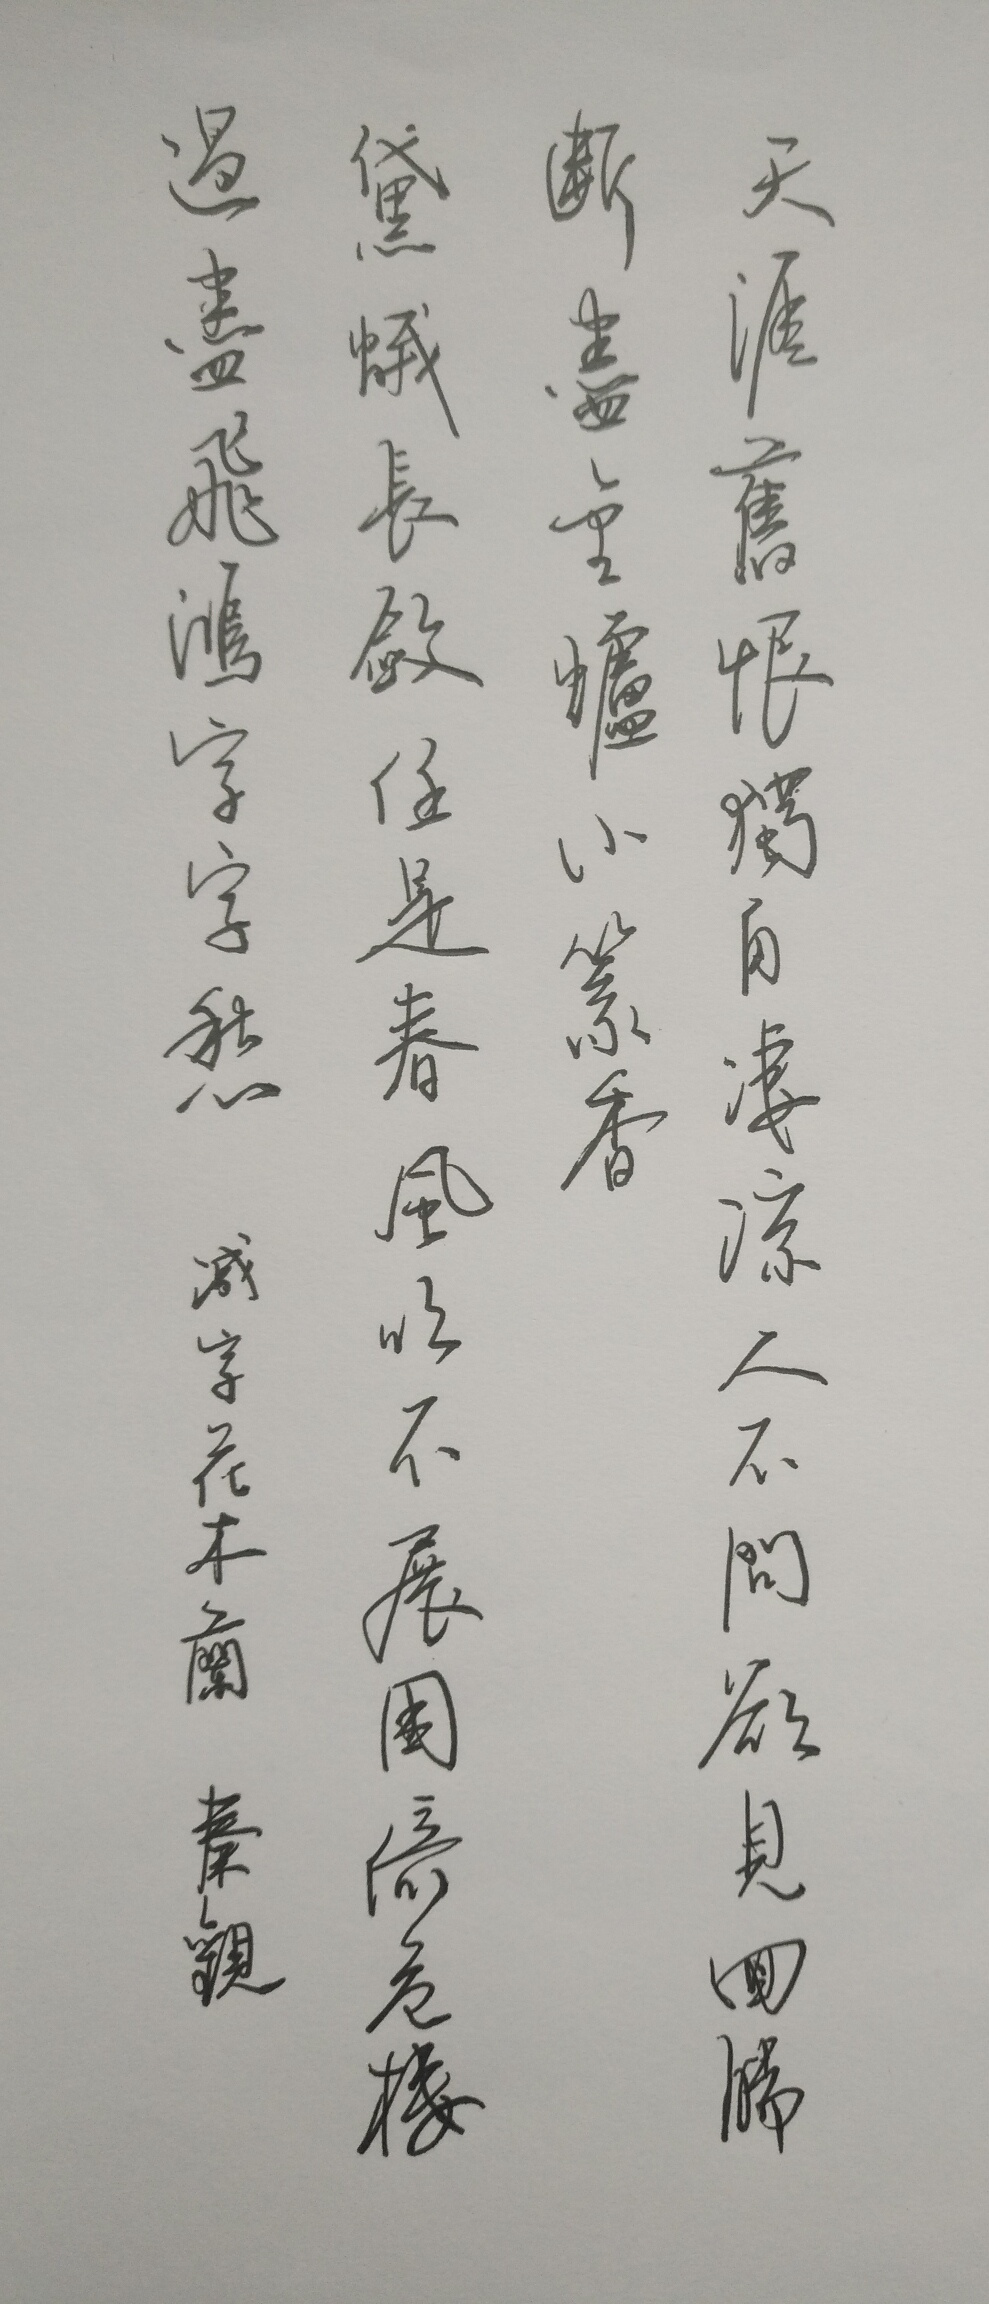 天涯舊恨獨自凄涼人不問欲見回腸
斷盡金爐小篆香
黛蛾長斂任是春風吹不展困倚危樓
過盡飛鴻字字愁 減字花木蘭 秦觀